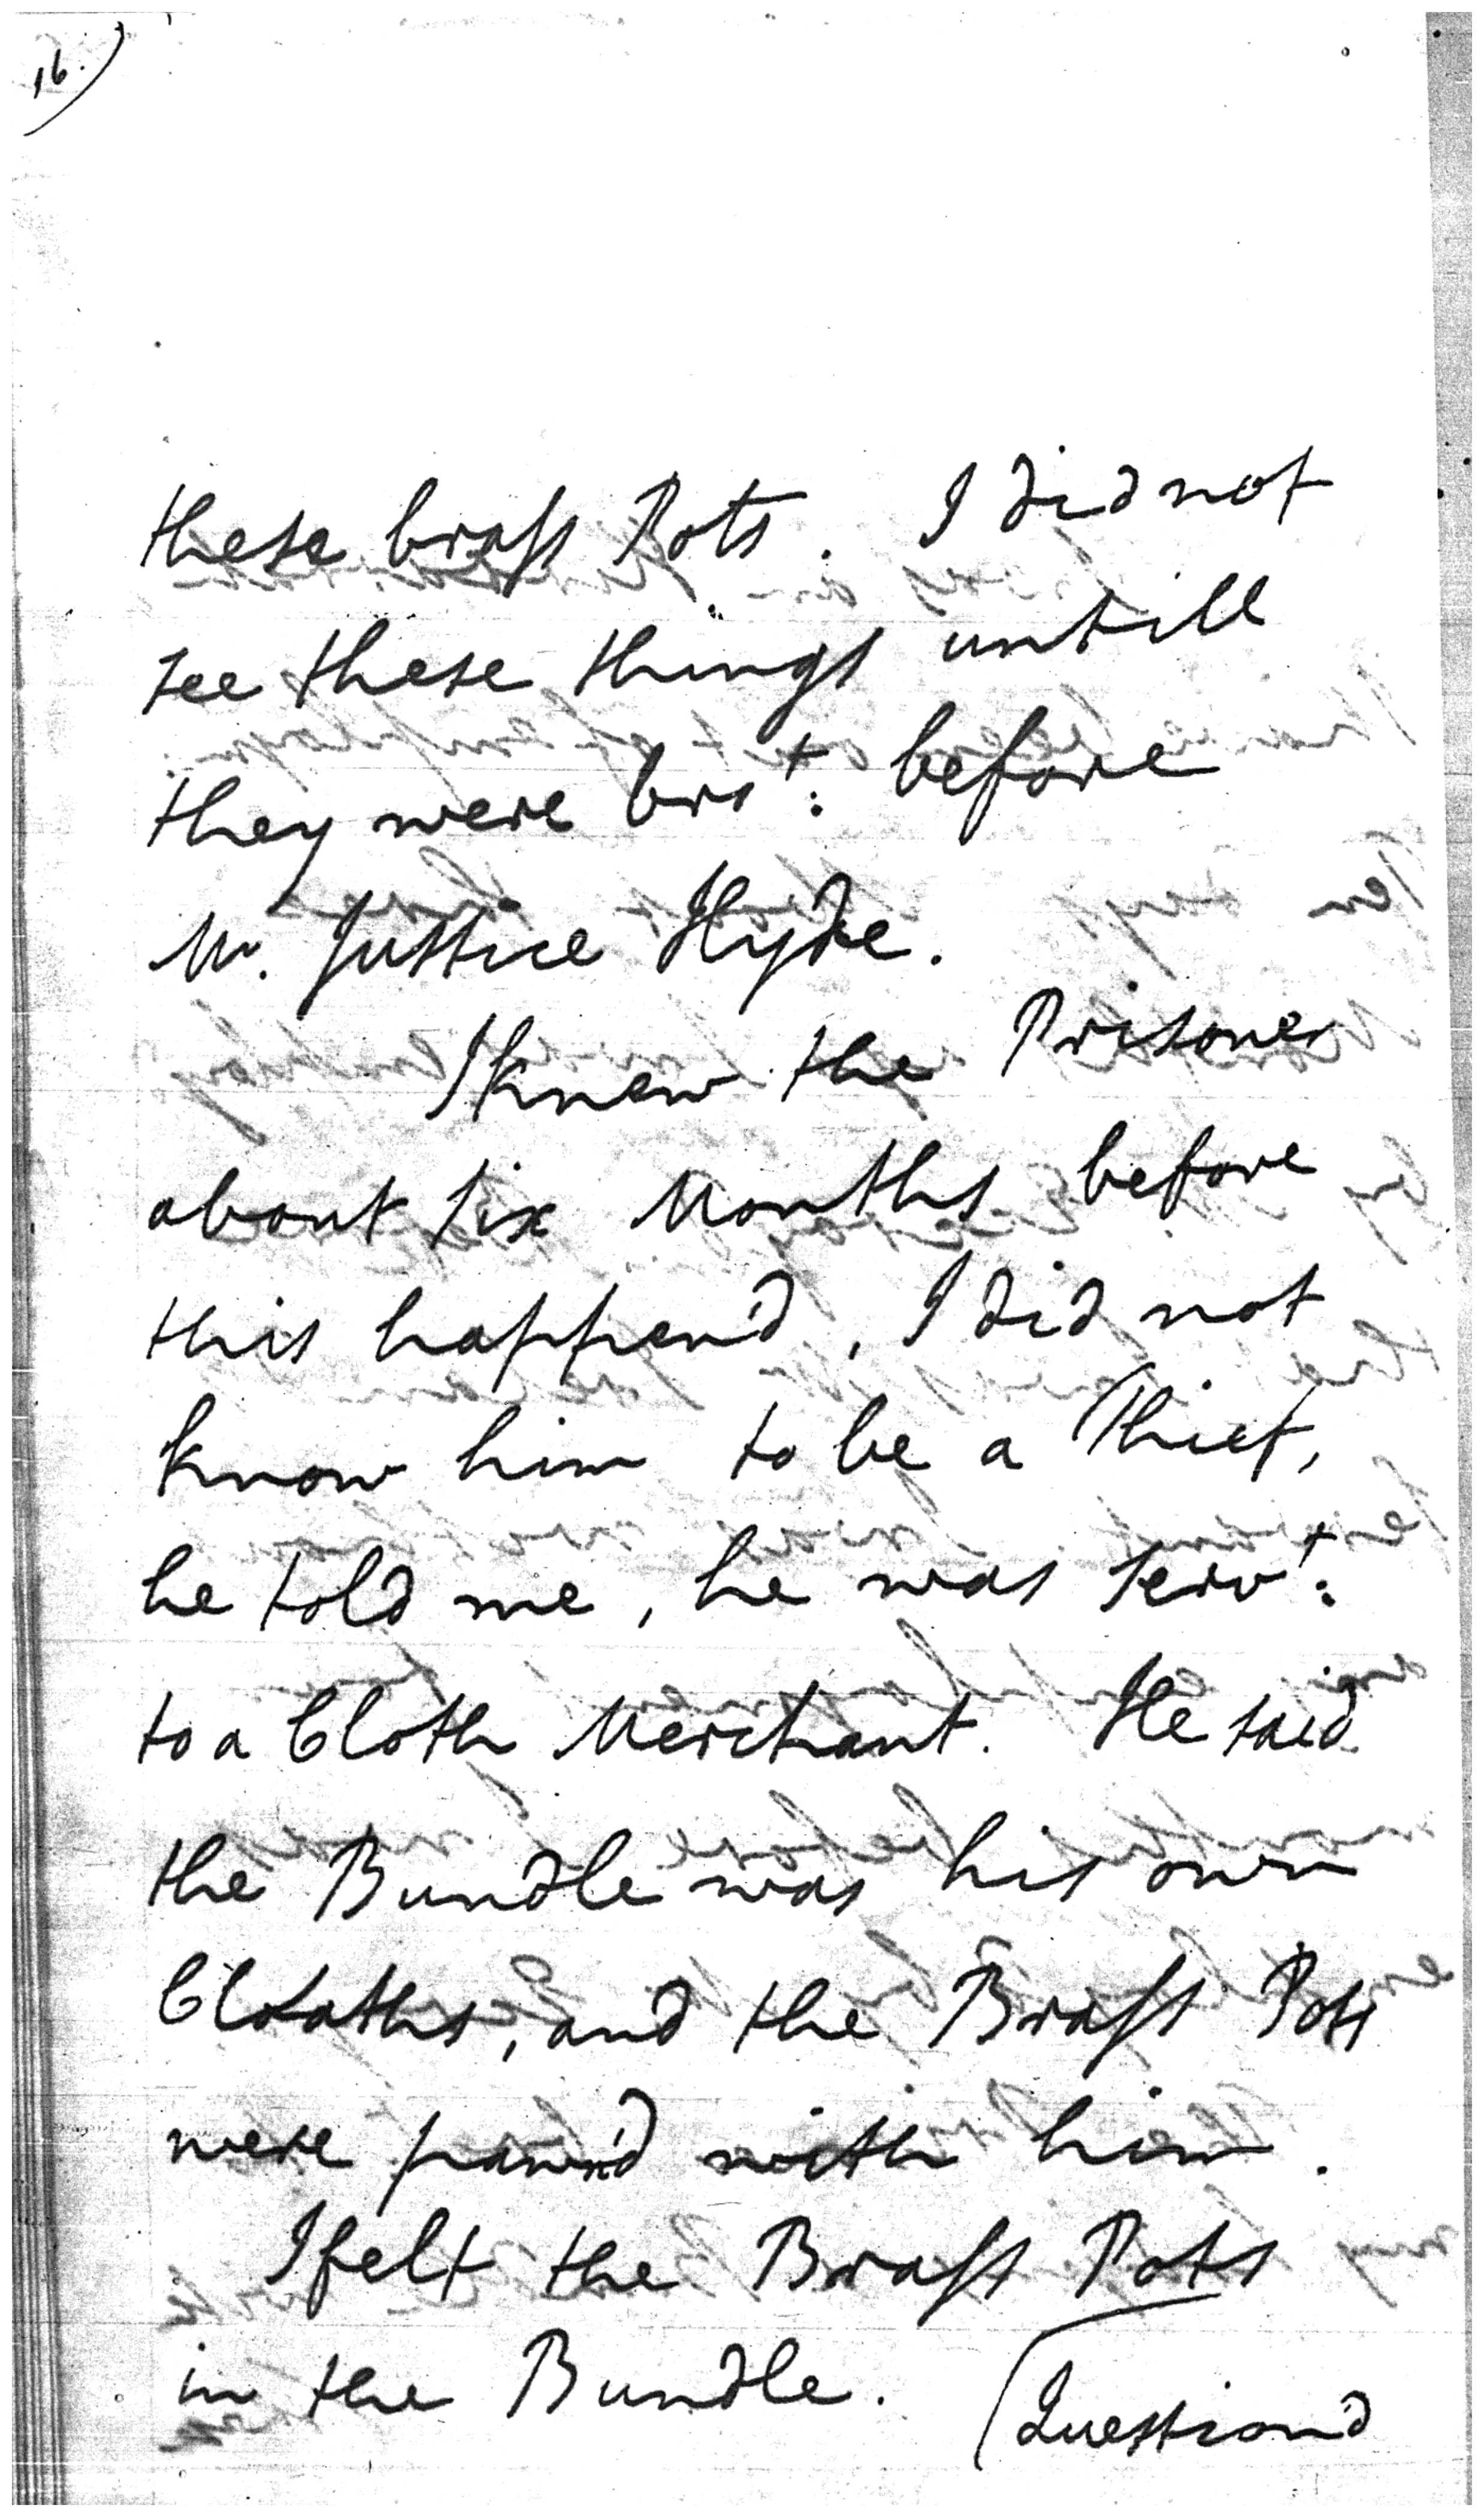 16.)
these brass Pots. I did not
see these things untill
they were bro:t before
Mr. Justice Hyde.
I knew the Prisoner
about six Months before
this happen'd, I did not
know him to be a Thief,
he told me, he was serv:t
to a Cloth Merchant. He said
the Bundle was his own
Cloaths, and the Brass Pots
were pawn'd with him.
I felt the Brass Pots
in the Bundle. (Question'd